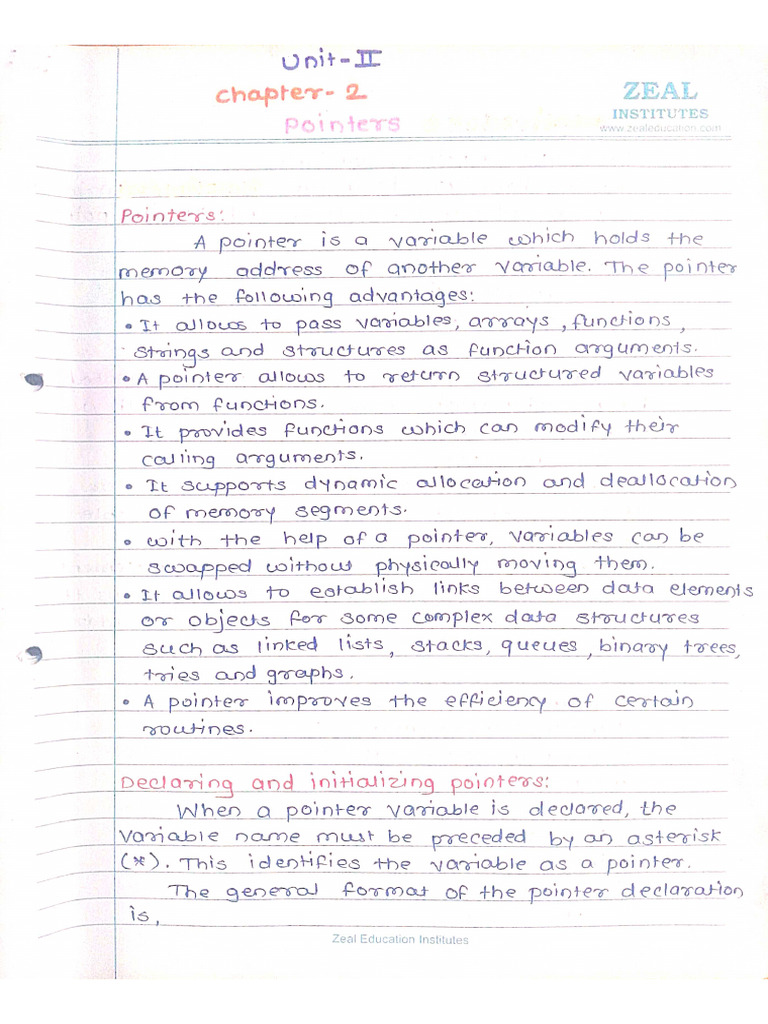 Unit-II
Chapter-2
Pointers
ZEAL
INSTITUTES
www.zealeducation.com
Pointers:
A pointer is a variable which holds the
memory address of another variable. The pointer
has the following advantages:
• It allows to pass variables, arrays, functions,
strings and structures as function arguments.
• A pointer allows to return structured variables
from functions.
• It provides functions which can modify their
calling arguments.
• It supports dynamic allocation and deallocation
of memory segments.
• with the help of a pointer, variables can be
swapped without physically moving them.
• It allows to establish links between data elements
or objects for some complex data structures
such as linked lists, stacks, queues, binary trees,
tries and graphs.
• A pointer improves the efficiency of certain
routines.
Declaring and initializing pointers:
When a pointer variable is declared, the
variable name must be preceded by an asterisk
(*). This identifies the variable as a pointer.
The general format of the pointer declaration
is,
Zeal Education Institutes